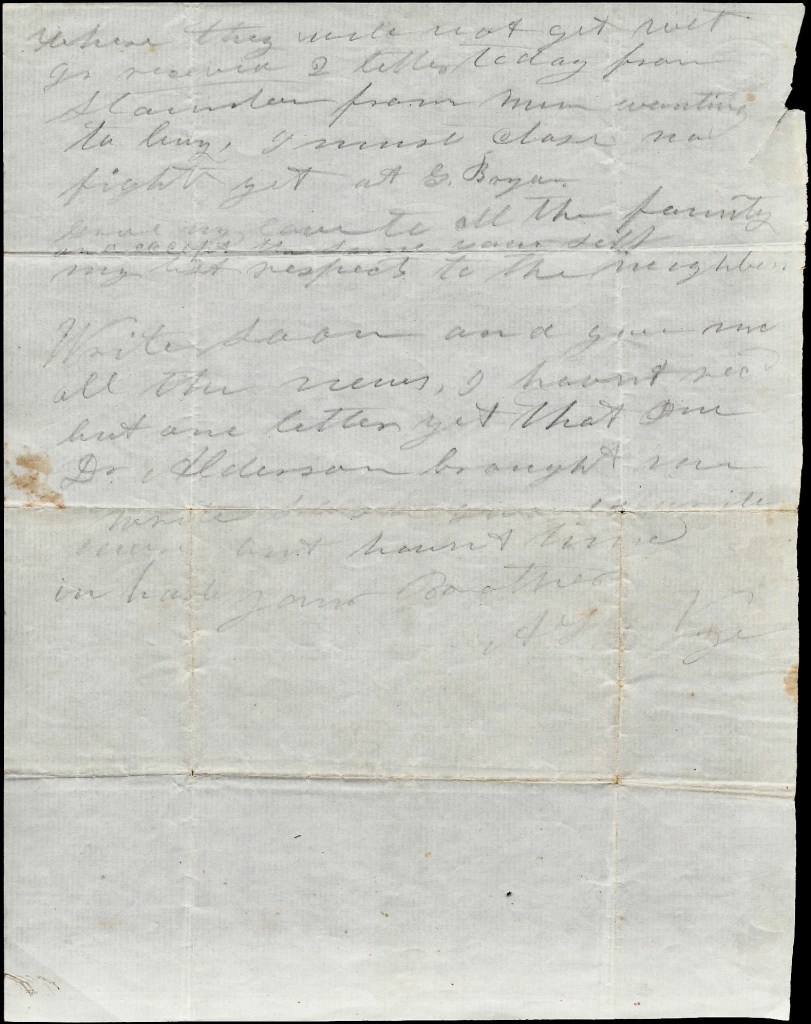 where they will not get wet
received 2 letters today from
Staunton from men wanting
to buy, I must close no
fight yet at G. Bryan
give my love to all the family
and accept the same your self
my best respects to the neighbors
Write soon and give me
all the news, I havnt recd
but one letter yet that one
Dr. Alderson brought me
write
more but havnt time
in haste your Brother